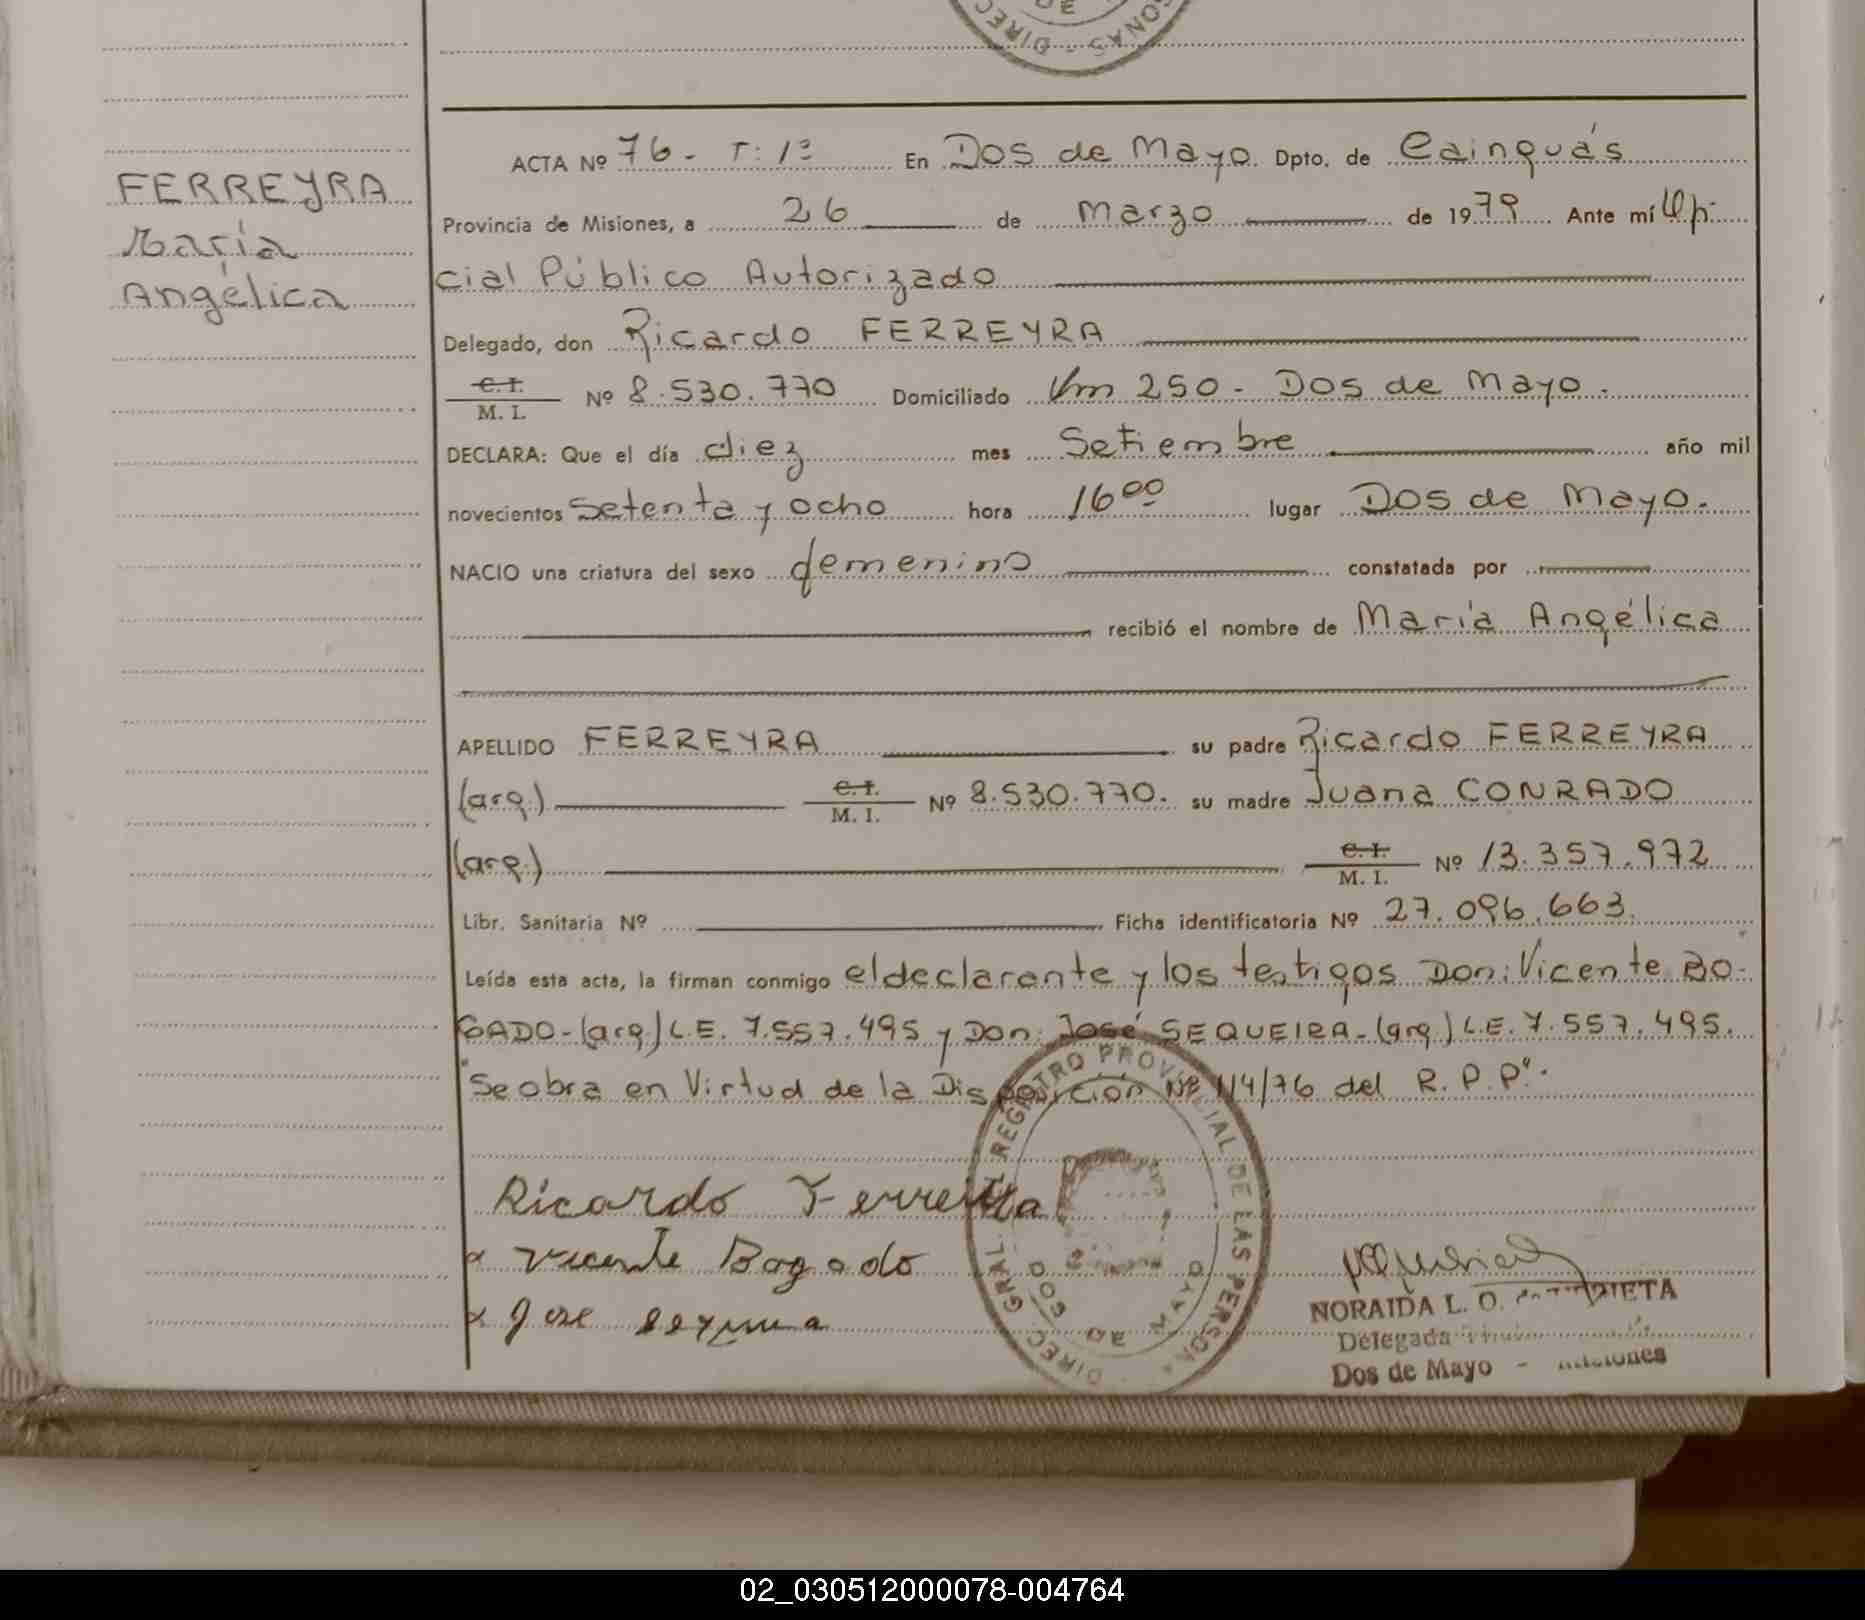 DE
DIREC
SONAS
FERREYRA
María
Angélica
ACTA Nº 76- T: 1º En Dos de Mayo Dpto. de Cainguás
Provincia de Misiones, a 26 de Marzo de 1979 Ante mí Ofi-
cial Público Autorizado
Delegado, don Ricardo FERREYRA
C. I.
M. I. Nº 8.530.770 Domiciliado Km 250 - Dos de Mayo.
DECLARA: Que el día diez mes Setiembre año mil
novecientos setenta y ocho hora 16 00 lugar Dos de Mayo.
NACIO una criatura del sexo femenino constatada por
recibió el nombre de María Angélica
APELLIDO FERREYRA su padre Ricardo FERREYRA
(arg.) C. I. M. I. Nº 8.530.770. su madre Juana CONRADO
(arg.) C. I. M. I. Nº 13.357.972
Libr. Sanitaria Nº Ficha identificatoria Nº 27.096.663.
Leída esta acta, la firman conmigo el declarante y los testigos Don: Vicente BO-
GADO-(arg.) L.E. 7.557.495 y Don: José SEQUEIRA-(arg.) L.E. 7.557.495.
"Se obra en Virtud de la Disposición Nº 114/76 del R.P.P".
Ricardo Ferreyra
x Vicente Bogado
x Jose
DIREC. GRAL. REGISTRO PROVINCIAL DE LAS PERSON
DOS DE MAYO
NORAIDA L. O.
Delegada
Dos de Mayo - Misiones
02_030512000078-004764